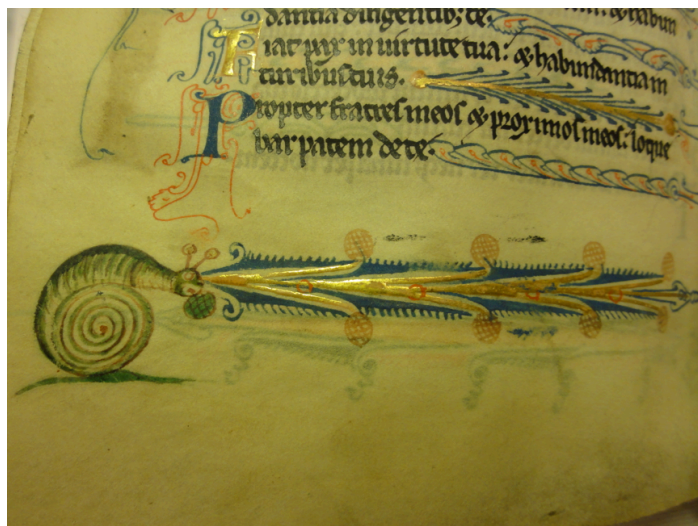 dantia diligentib; te.
Fiat pax in uirtute tua: & habundantiam
turibus tuis.
Propter fratres meos & proximos meos: loque
bar pacem de te.